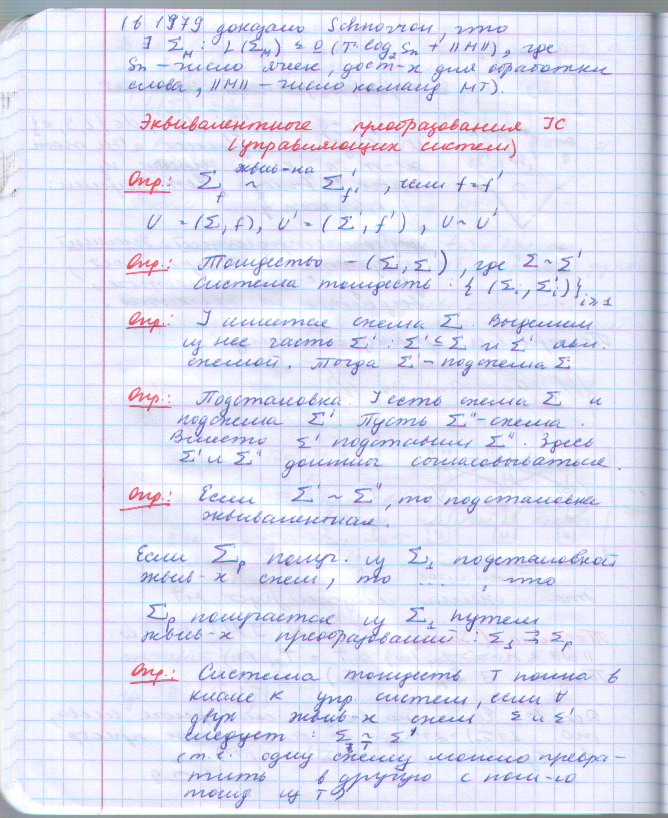 (в 1979 доказано Schnorrом, что
∃ Σ_M : L(Σ_M) ≤ O(T·log₂Sn + ||M||), где
Sn – число ячеек, дост-х для обработки
слова, ||M|| – число команд МТ).
Эквивалентные преобразования УС
(управляющих систем)
Опр.: Σ_f эквив-на ~ Σ'_f', если f=f'
U = (Σ, f), U' = (Σ', f'), U ~ U'
Опр.: Тождество – (Σ, Σ'), где Σ ~ Σ'
Система тождеств: {(Σ_i, Σ'_i)}_{i≥1}
Опр.: ] имеется схема Σ. Выделим
из нее часть Σ' : Σ' ⊆ Σ и Σ' явл.
схемой. Тогда Σ' – подсхема Σ
Опр.: Подстановка. ] есть схема Σ и
подсхема Σ'. Пусть Σ'' – схема.
Вместо Σ' подставим Σ''. Здесь
Σ' и Σ'' должны согласовываться.
Опр.: Если Σ' ~ Σ'', то подстановка
эквивалентная.
Если Σ_p получ. из Σ_1 подстановкой
эквив-х схем, то ..., что
Σ_p получается из Σ_1 путем
эквив-х преобразований : Σ_1 ⇉ Σ_p
Опр.: Система тождеств T полна в
классе K упр. систем, если ∀
двух эквив-х схем Σ и Σ'
следует : Σ ~ Σ'
(т.е. одну схему можно превра-
тить в другую с пом-ю
тожд из T)